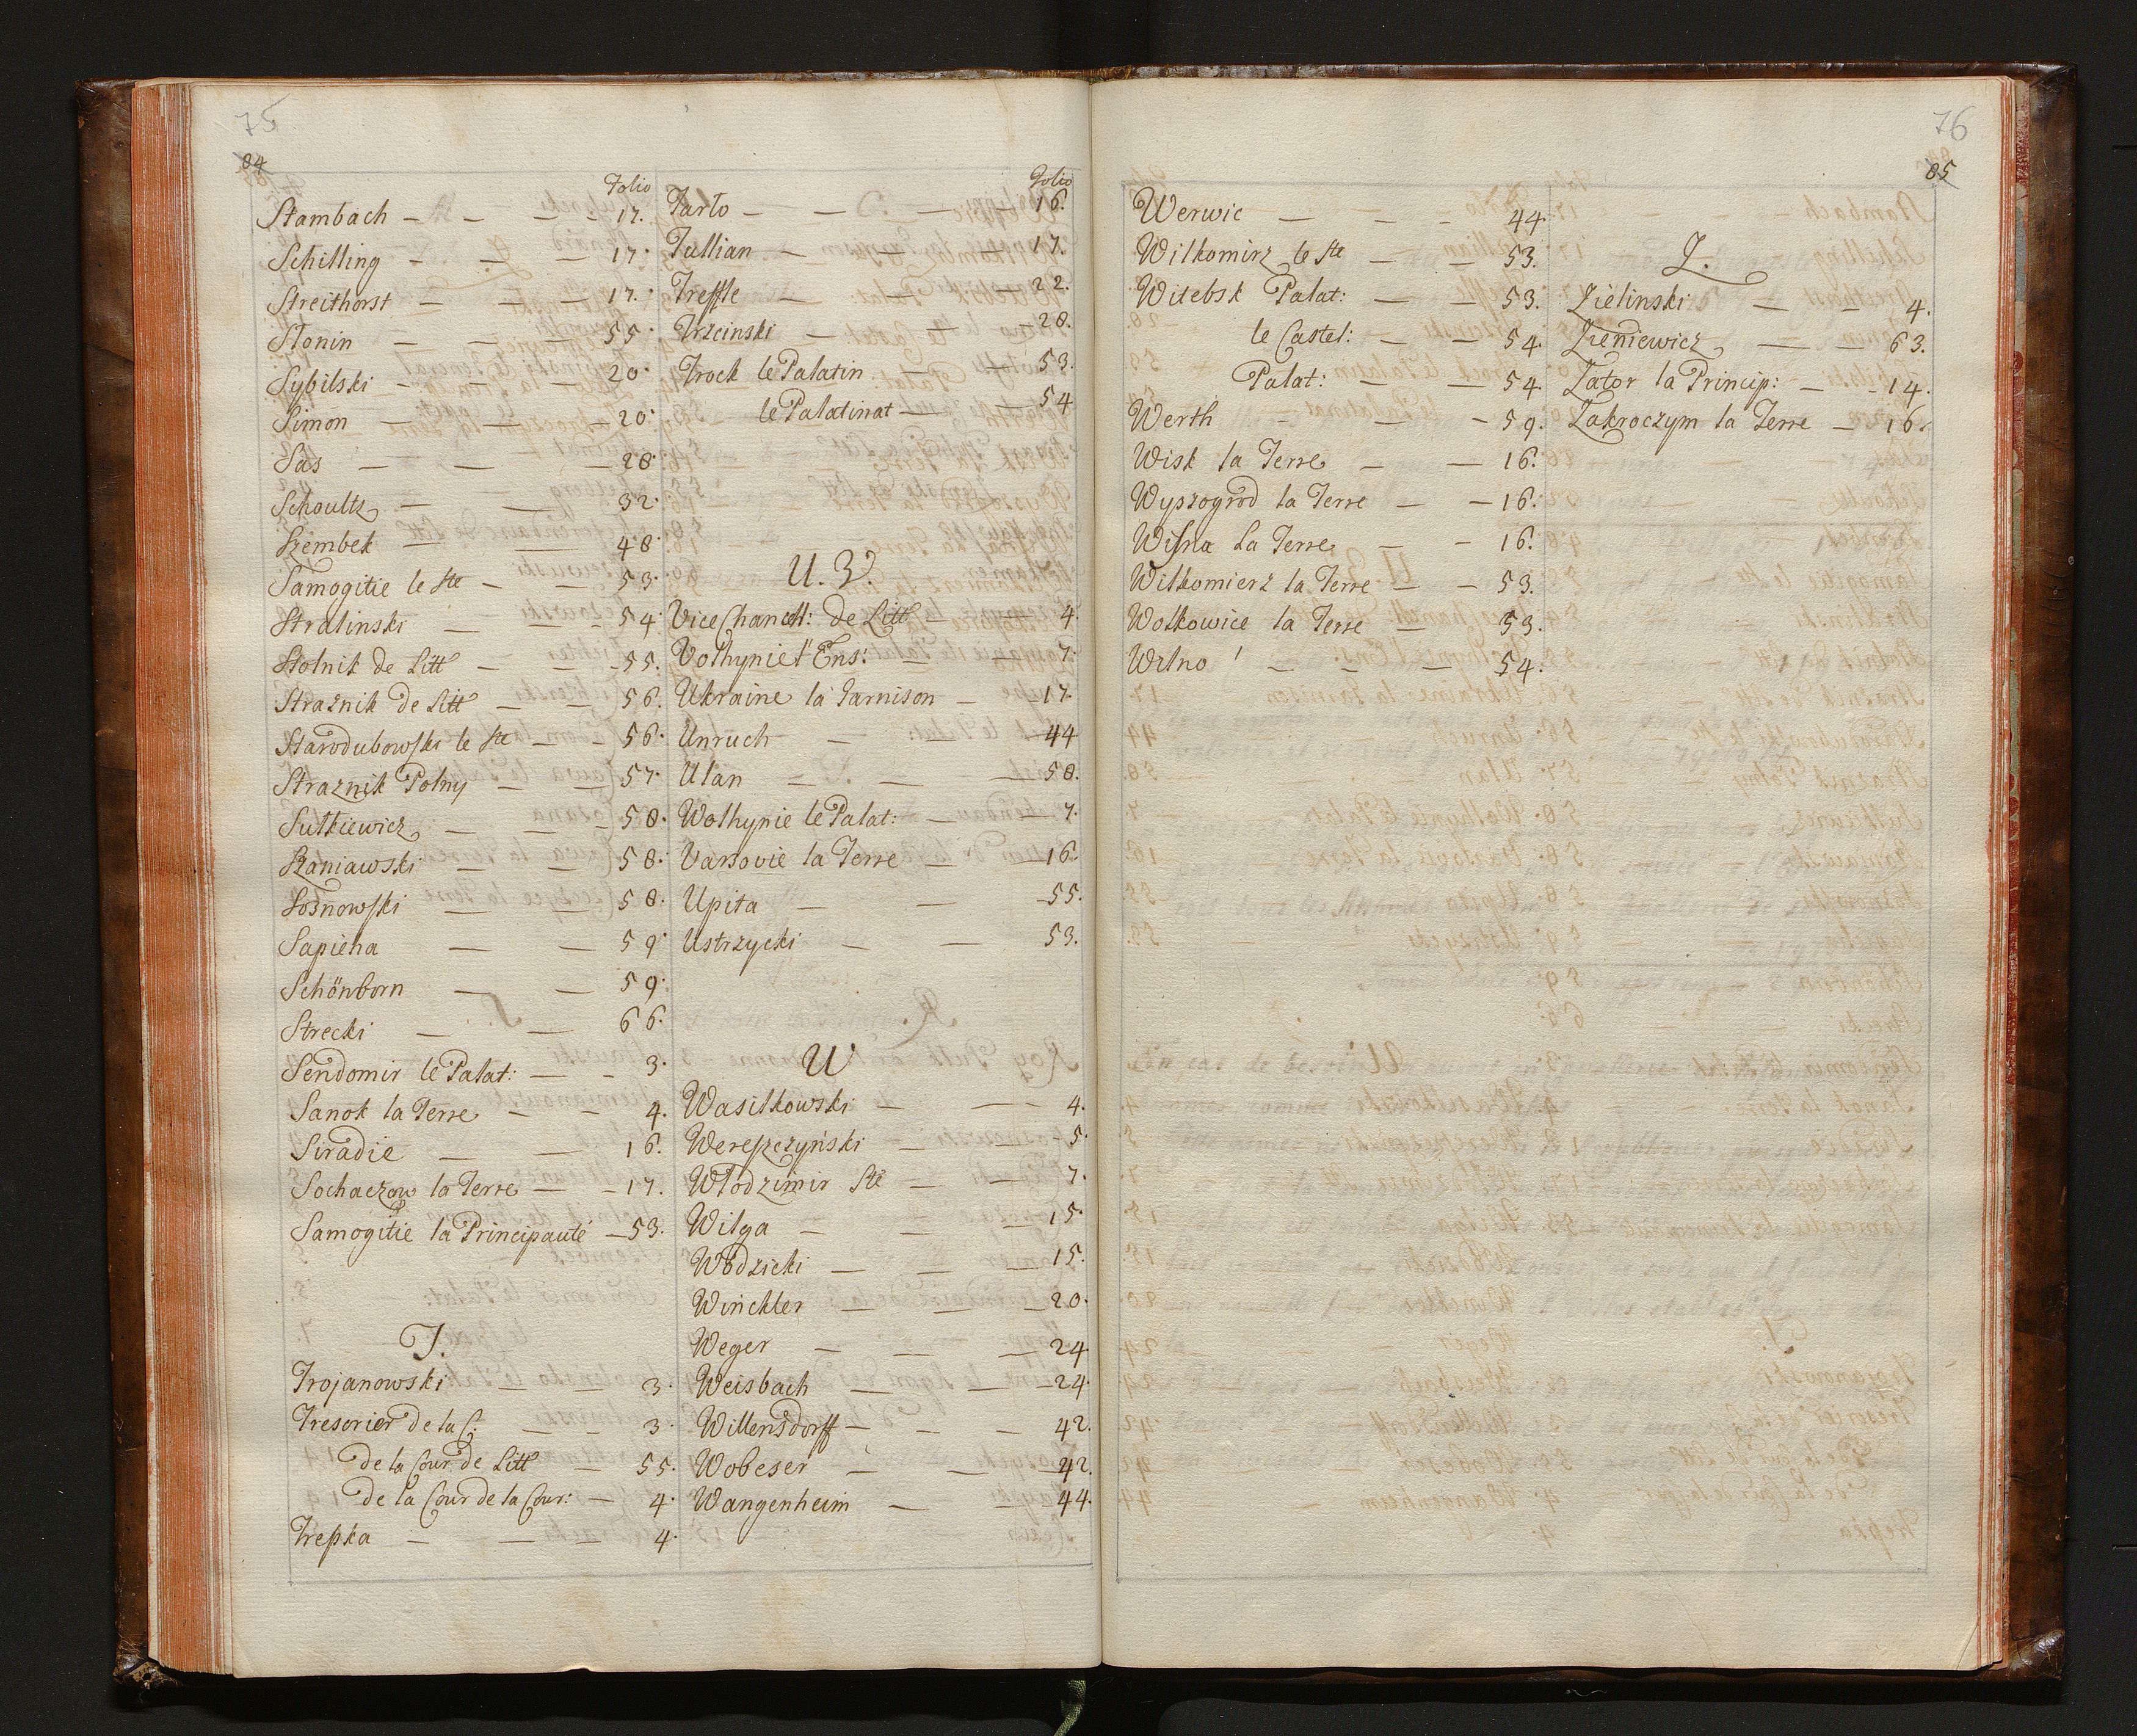 75
84
Folio
Stambach - - - - 17.
Schilling - - - 17.
Streithorst - - - 17.
Slonin - - - 55.
Sybilski - - - 20.
Simon - - - 20.
Sas - - - 28.
Schoultz - - 32.
Szembek - - 48.
Samogitie le Ste - - 53.
Stralinski - - 54.
Stolnik de Litt - - 55.
Straźnik de Litt - - 56.
Starodubowski le Ste - - 56.
Straznik Polny - - 57.
Sutkiewicz - - - 58.
Szaniawski - - 58.
Sosnowski - - 58.
Sapieha - - 59.
Schönborn - - 59.
Strecki - - 66.
Sendomir le Palat: - - 3.
Sanok la Terre - - 4.
Siradie - - 16.
Sochaczow la Terre - - 17.
Samogitie la Principauté - 53.
T.
Trojanowski - - 3.
Tresorier de la C. - - 3.
de la Cour de Litt - 55.
de la Cour de la Cour: - 4.
Trepka - - - 4.
Folio
Tarlo - - - - 16.
Tullian - - - 17.
Treffle - - - 22.
Trzcinski - - 28.
Trock le Palatin - - 53.
le Palatinat - - 54
U. V.
Vice Chancell: de Litt - - 4.
Volhynie l'Ens: - - 7.
Ukraine la Garnison - - 17.
Unruch - - - 44
Ulan - - - 58.
Wolhynie le Palat: - - 7.
Varsovie la Terre - - 16.
Upita - - - 55.
Ustrzycki - - 53.
W
Wasilkowski - - 4.
Wereszczyński - - 5.
Wlodzimir Ste - - 7.
Wilga - - - 15.
Wodzicki - - - 15.
Winckler - - - 20.
Weger - - - 24.
Weisbach - - - 24.
Willensdorff - - - 42.
Wobeser - - - 42.
Wangenheim - - 44.
76
85
Werwic - - - 44.
Wilkomirz le Ste - - 53.
Witebsk Palat: - - 53.
le Castel: - - 54.
Palat: - - 54.
Werth - - - 59.
Wisk la Terre - - 16.
Wyszogrod la Terre - - 16.
Wisna La Terre - - 16.
Wilkomierz la Terre - - 53.
Wolkowice la Terre - 53.
Wilno - - - 54.
Z.
Zielinski - - 4.
Zieniewicz - - 63.
Zator la Princip: - - 14.
Zakroczym la Terre - 16.